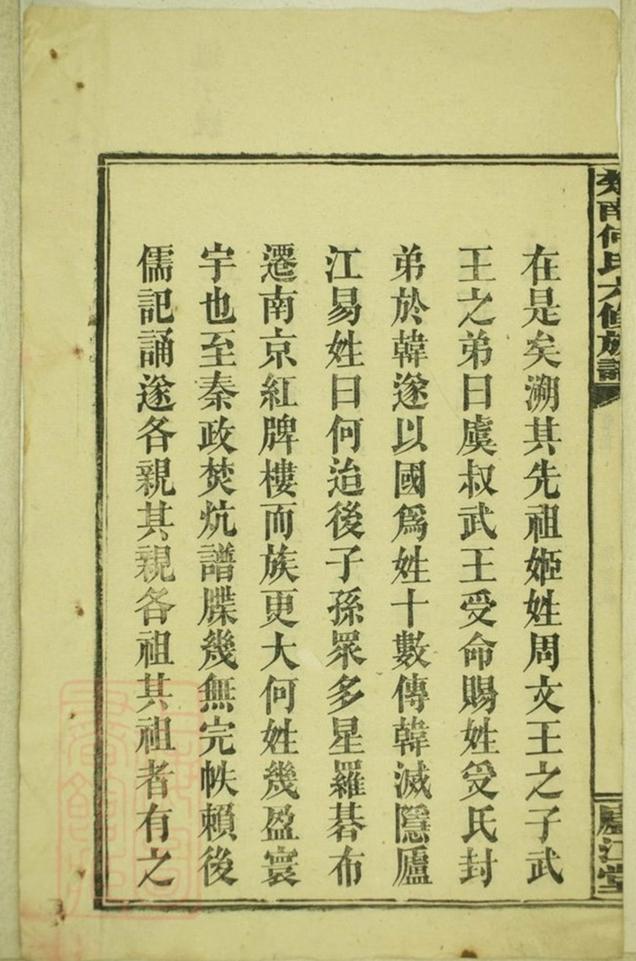 南何氏六修族譜
廬江堂
在是矣溯其先祖姬姓周文王之子武
王之弟曰虞叔武王受命賜姓受氏封
弟於韓遂以國爲姓十數傳韓滅隱廬
江易姓曰何迨後子孫眾多星羅碁布
遷南京紅牌樓而族更大何姓幾盈寰
宇也至秦政焚炕譜牒幾無完帙賴後
儒記誦遂各親其親各祖其祖者有之